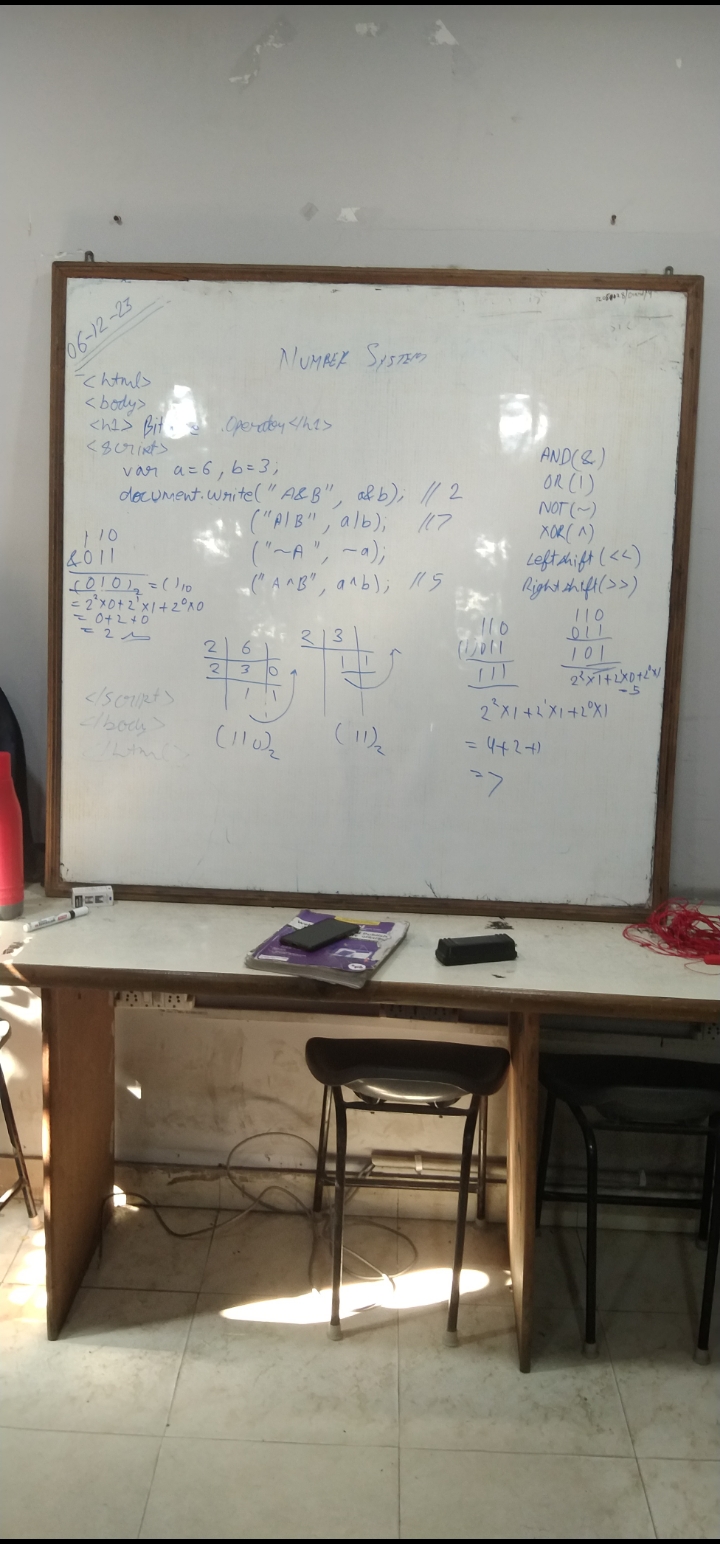 06-12-23
NUMBER SYSTEM
<html>
<body>
<h1> Bit Operator </h1>
<script>
var a=6, b=3;
document.write("A&B", a&b); //2
("A|B", a|b); //7
("~A", ~a);
("A^B", a^b); //5
AND(&)
OR(|)
NOT(~)
XOR(^)
Left shift (<<)
Right shift (>>)
110
&011
(010)₂ = ( )₁₀
= 2²×0+2¹×1+2⁰×0
= 0+2+0
= 2
</script>
</body>
</html>
2 6
2 3 0
1 1
(110)₂
2 3
1 1
(11)₂
110
(|)011
111
2²×1+2¹×1+2⁰×1
= 4+2+1
= 7
110
011
101
2²×1+2¹×0+2⁰×1
= 5